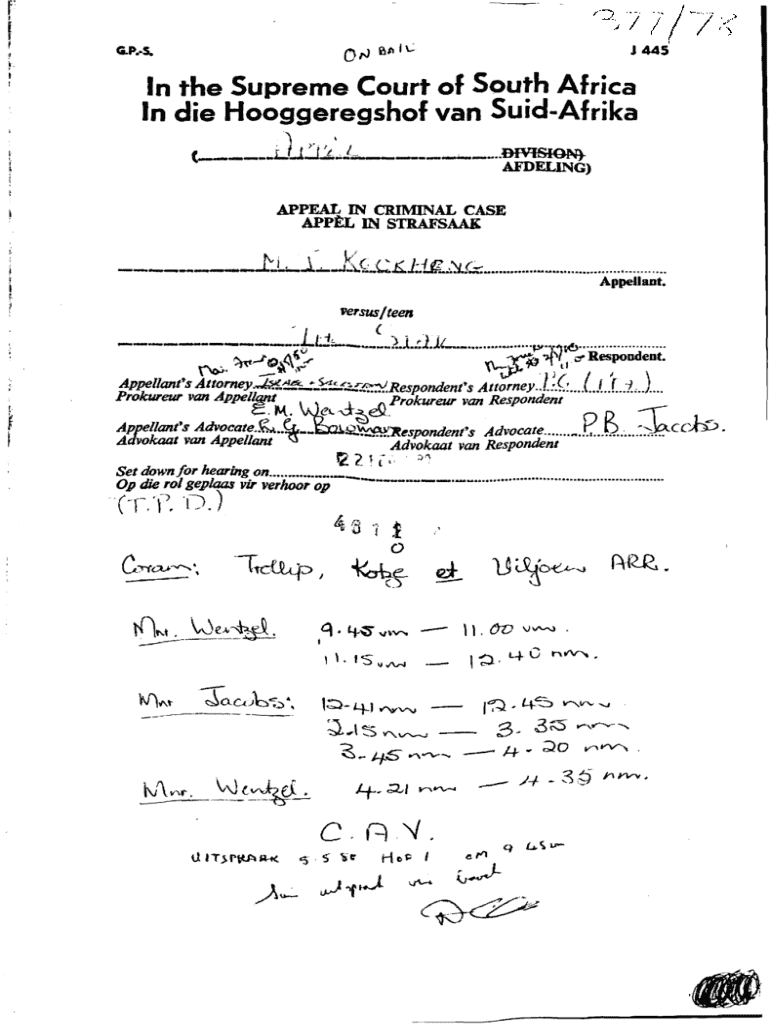 377/78
G.P.-S. ON BAIL J 445
In the Supreme Court of South Africa
In die Hooggeregshof van Suid-Afrika
(........ DIVISION)
AFDELING)
APPEAL IN CRIMINAL CASE
APPÈL IN STRAFSAAK
M. J. KOCKHENG
Appellant.
versus/teen
Respondent.
Appellant's Attorney Respondent's Attorney
Prokureur van Appellant Prokureur van Respondent
E.M. Wentzel
Appellant's Advocate R. G Bowman Respondent's Advocate P.B. Jacobs.
Advokaat van Appellant Advokaat van Respondent
Set down for hearing on
Op die rol geplaas vir verhoor op
(T.P.D.)
Coram: Trollip, Kotze et Viljoen ARR.
Mnr. Wentzel. 9.45 vm — 11.00 vm.
11.15 vm — 12.40 nm.
Mnr Jacobs: 12-41 nm — 12.45 nm
2.15 nm — 3.35 nm
3.45 nm — 4-20 nm.
Mnr. Wentzel. 4.21 nm — 4.35 nm.
C.A.V.
UITSPRAAK 5 5 80 HOF 1 om 9 45 vm